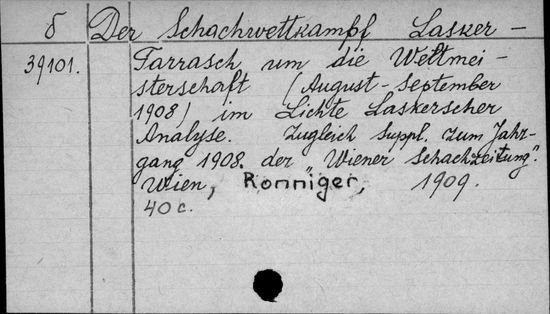 δ Der Schachwettkampf Lasker -
39101. Tarrasch um die Weltmei -
sterschaft (August - September
1908) im Lichte Laskerscher
Analyse. Zugleich Suppl. zum Jahr-
gang 1908. der „Wiener Schachzeitung".
Wien, Ronniger, 1909.
40 c.